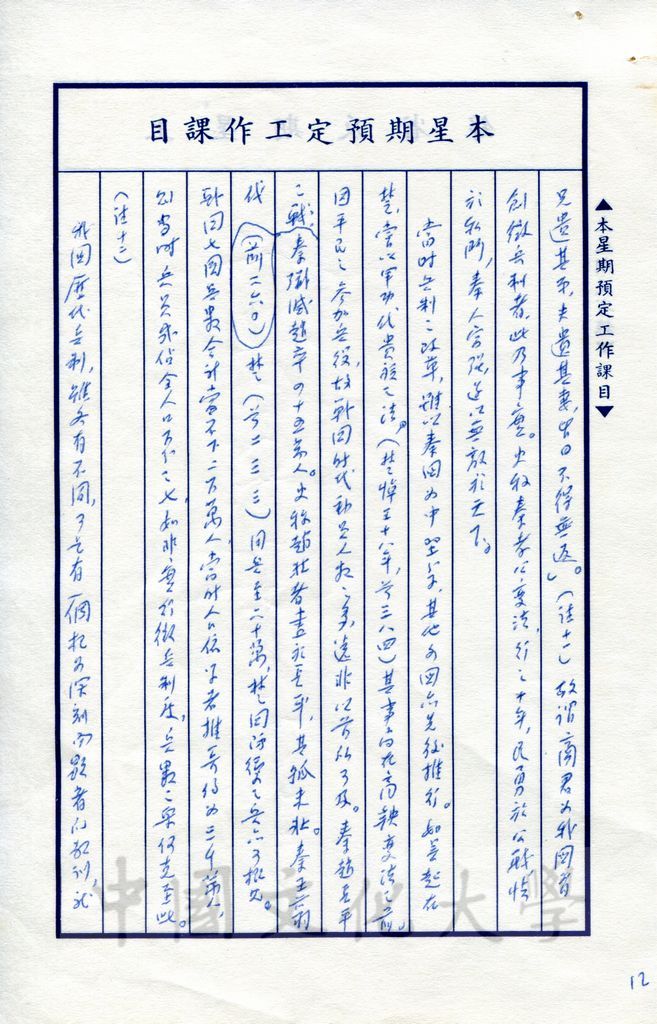 本星期預定工作課目
▲本星期預定工作課目▼
兄遺其弟，夫遺其妻，皆曰不得無返。」（註十一）故謂商君為我國首
創徵兵制者，此乃事實。史稱秦孝公變法，行之十年，民勇於公戰怯
於私鬥，秦人富強，遂以無敵於天下。
當時兵制之改革，雖以秦國為中堅，其他各國亦先後推行。如吳起在
楚，嘗以軍功代貴族之法，（楚悼王十八年，前三八四）其事尚在商鞅變法之前。
因平民之參加兵役，故戰國時代動員人數之多，遠非以前所可及。秦趙長平
之戰，秦殲滅趙卒四十五萬人。史稱趙壯者盡於長平，其孤未壯。秦王翦
伐（前二六〇）楚（前二二三）用兵至六十萬，楚國所
戰國七國兵數合計當不下二百萬人，當時人口依學者推算約為三千萬人，
則當時兵員或佔全人口百分之七，如非實行徵兵制度，兵數之眾何克至此。
（註十二）
我國歷代兵制，雖各有不同，可是有一個極為深刻
中國文化大學
12